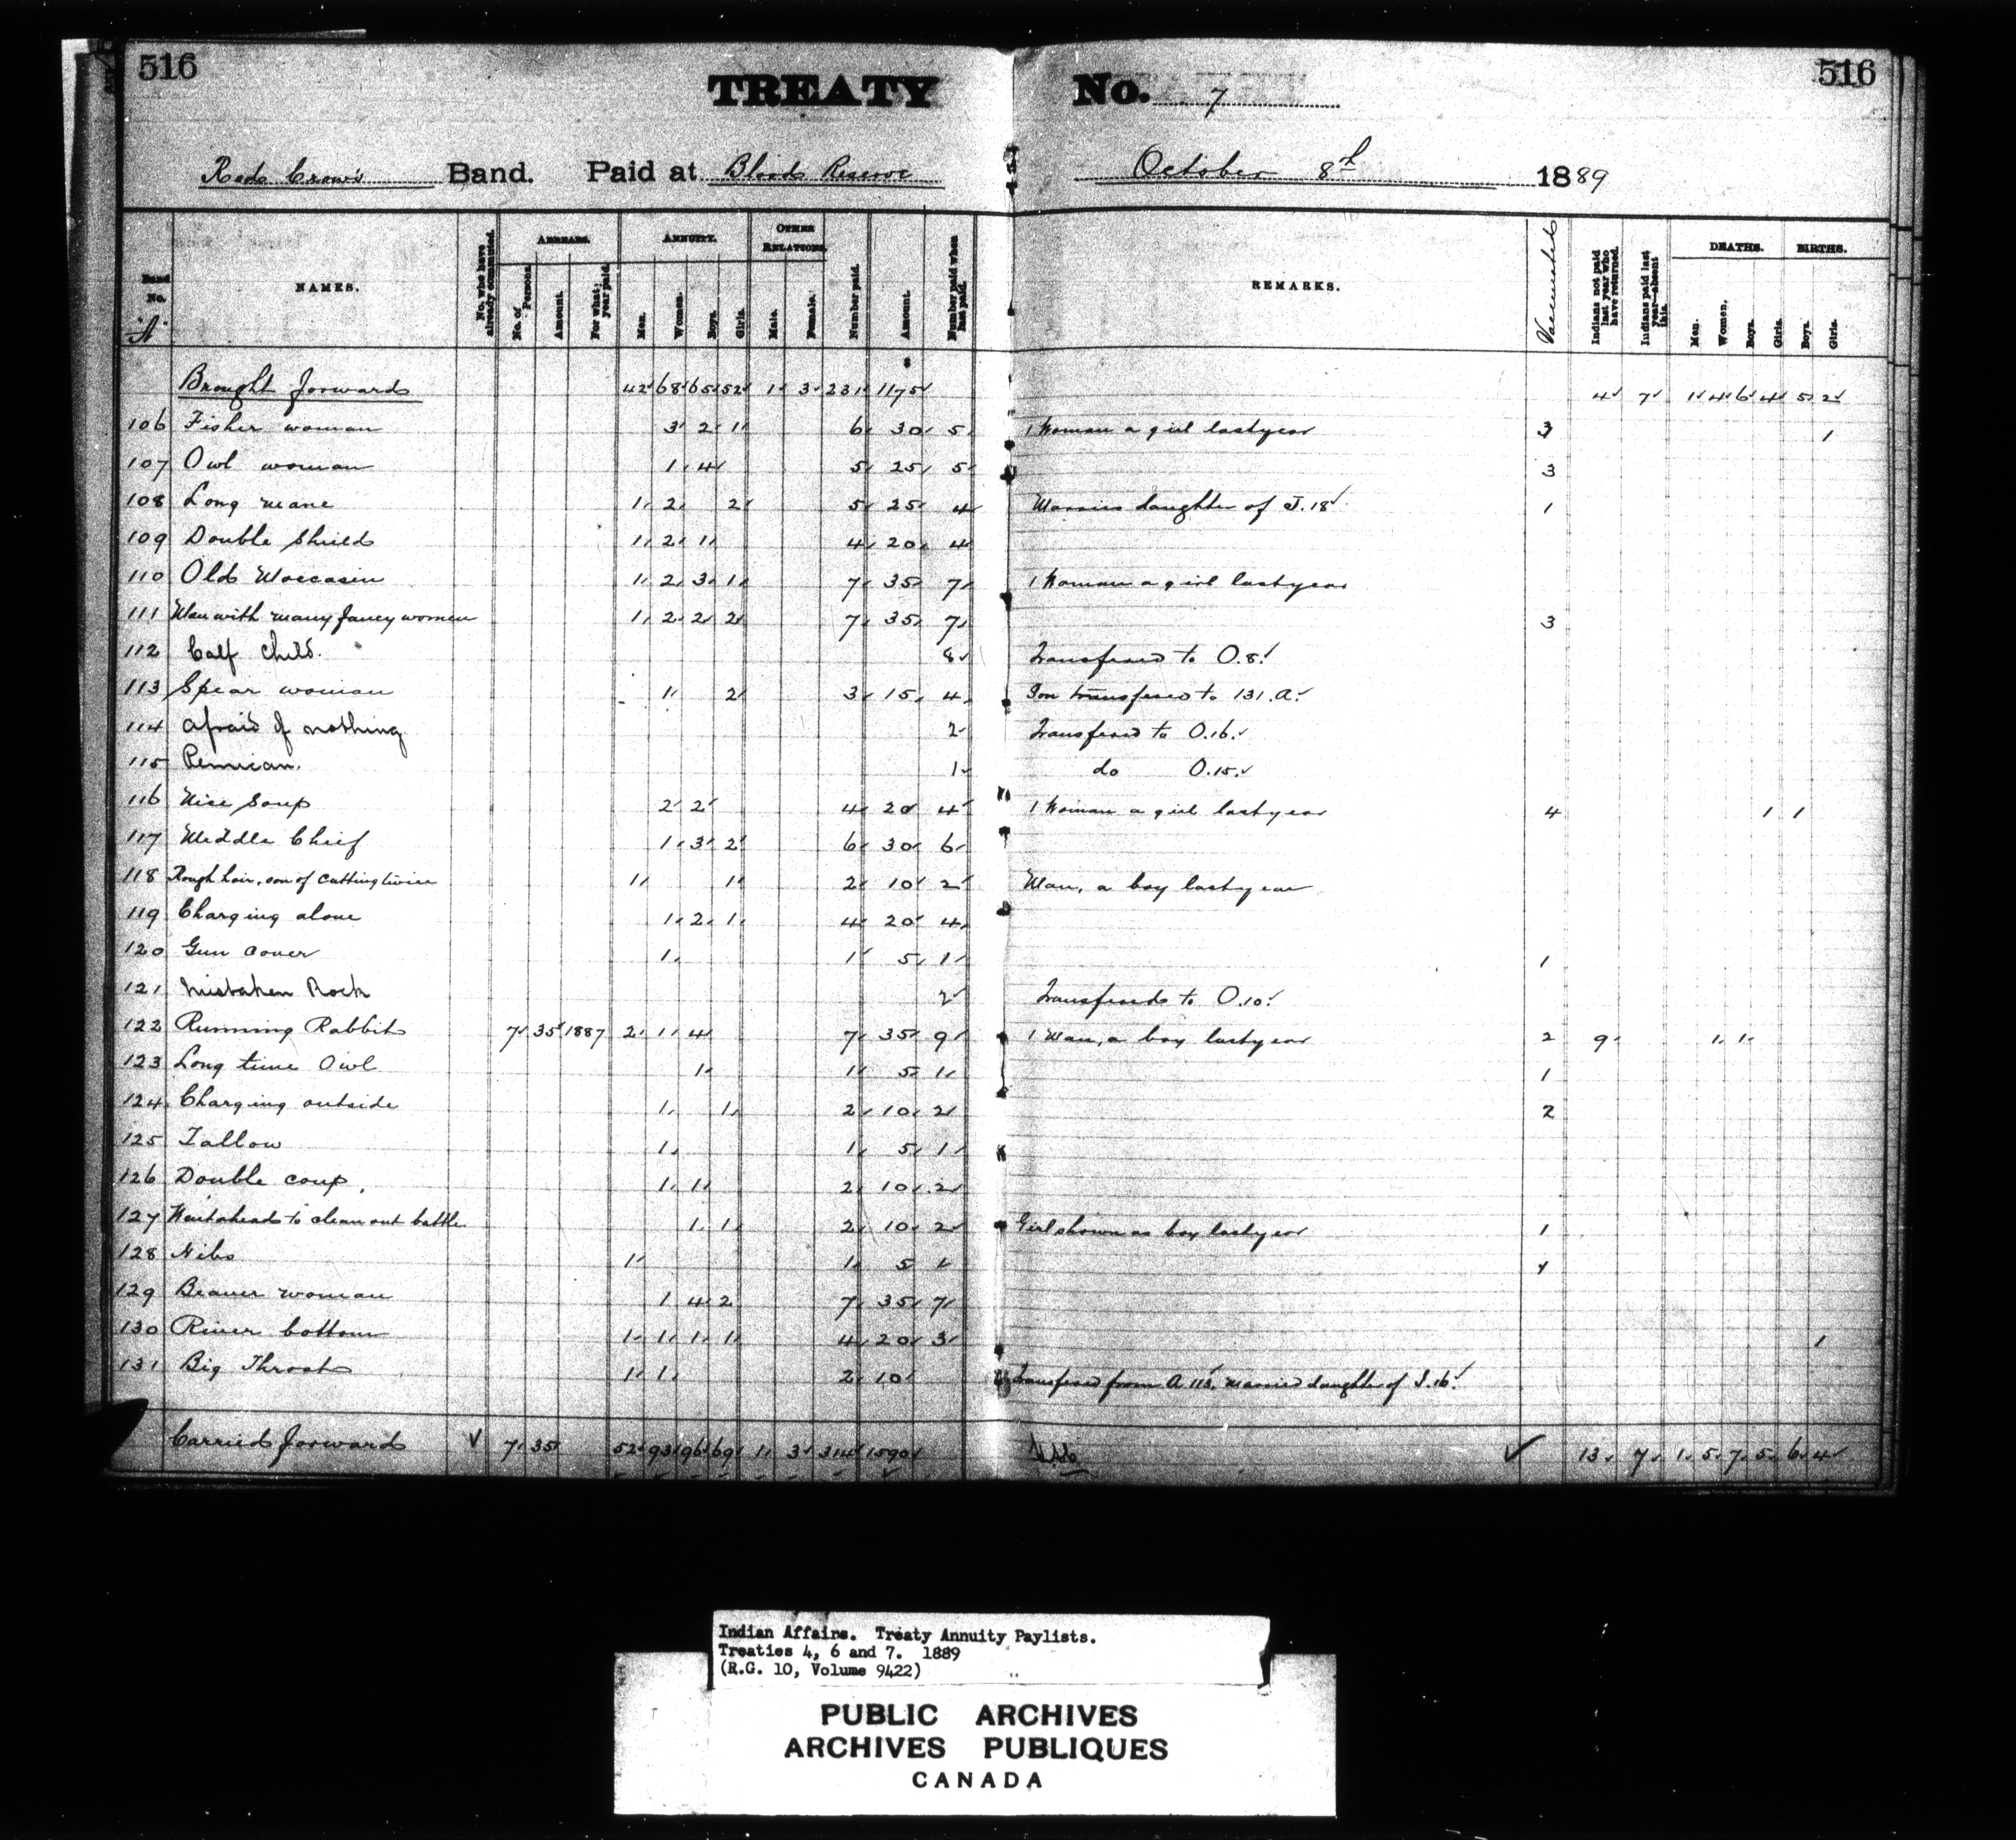 516 TREATY No. 7 516
Red Crow's Band. Paid at Blood Reserve October 8th 1889
Band No. "A" NAMES. No. who have already commuted. ARREARS. No. of Persons. Amount. For what year paid. ANNUITY. Men. Women. Boys. Girls. OTHER RELATIONS. Male. Female. Number paid. Amount. Number paid when last paid. REMARKS. Vaccinated Indians not paid last year who have returned. Indians paid last year—absent this. DEATHS. Men. Women. Boys. Girls. BIRTHS. Boys. Girls.
Brought forward 42 68 65 52 1 3 231 1175 4 7 1 4 6 4 5 2
106 Fisher woman 3 2 1 6 30 5 1 Woman a girl last year 3 1
107 Owl woman 1 4 5 25 5 3
108 Long mane 1 2 2 5 25 4 Married daughter of J.18 1
109 Double Shield 1 2 1 4 20 4
110 Old Moccasin 1 2 3 1 7 35 7 1 Woman a girl last year
111 Man with many fancy women 1 2 2 2 7 35 7 3
112 Calf Child. 8 Transfered to O.8.
113 Spear woman 1 2 3 15 4 Son transfered to 131.A.
114 Afraid of nothing 2 Transfered to O.16.
115 Pemican. 1 do O.15.
116 Nice Soup 2 2 4 20 4 1 Woman a girl last year 4 1 1
117 Middle Chief 1 3 2 6 30 6
118 Rough hair, son of Cutting twice 1 1 2 10 2 Man, a boy last year
119 Charging alone 1 2 1 4 20 4
120 Gun cover 1 1 5 1 1
121 Mistaken Rock 2 Transfered to O.10.
122 Running Rabbit 7 35 1887 2 1 4 7 35 9 1 Man, a boy last year 2 9 1 1
123 Long time Owl 1 1 5 1 1
124 Charging outside 1 1 2 10 2 2
125 Tallow 1 1 5 1
126 Double coup. 1 1 2 10 2
127 Went ahead to clean out battle 1 1 2 10 2 Girl shown as boy last year 1
128 Nibs 1 1 5 1
129 Beaver woman 1 4 2 7 35 7
130 River bottom 1 1 1 1 4 20 3 1
131 Big Throat 1 1 2 10 Transfered from A 113. Married daughter of J.16.
Carried forward 7 35 52 93 96 69 1 3 314 1590 13 7 1 5 7 5 6 4
Indian Affairs. Treaty Annuity Paylists.
Treaties 4, 6 and 7. 1889
(R.G. 10, Volume 9422)
PUBLIC ARCHIVES
ARCHIVES PUBLIQUES
CANADA